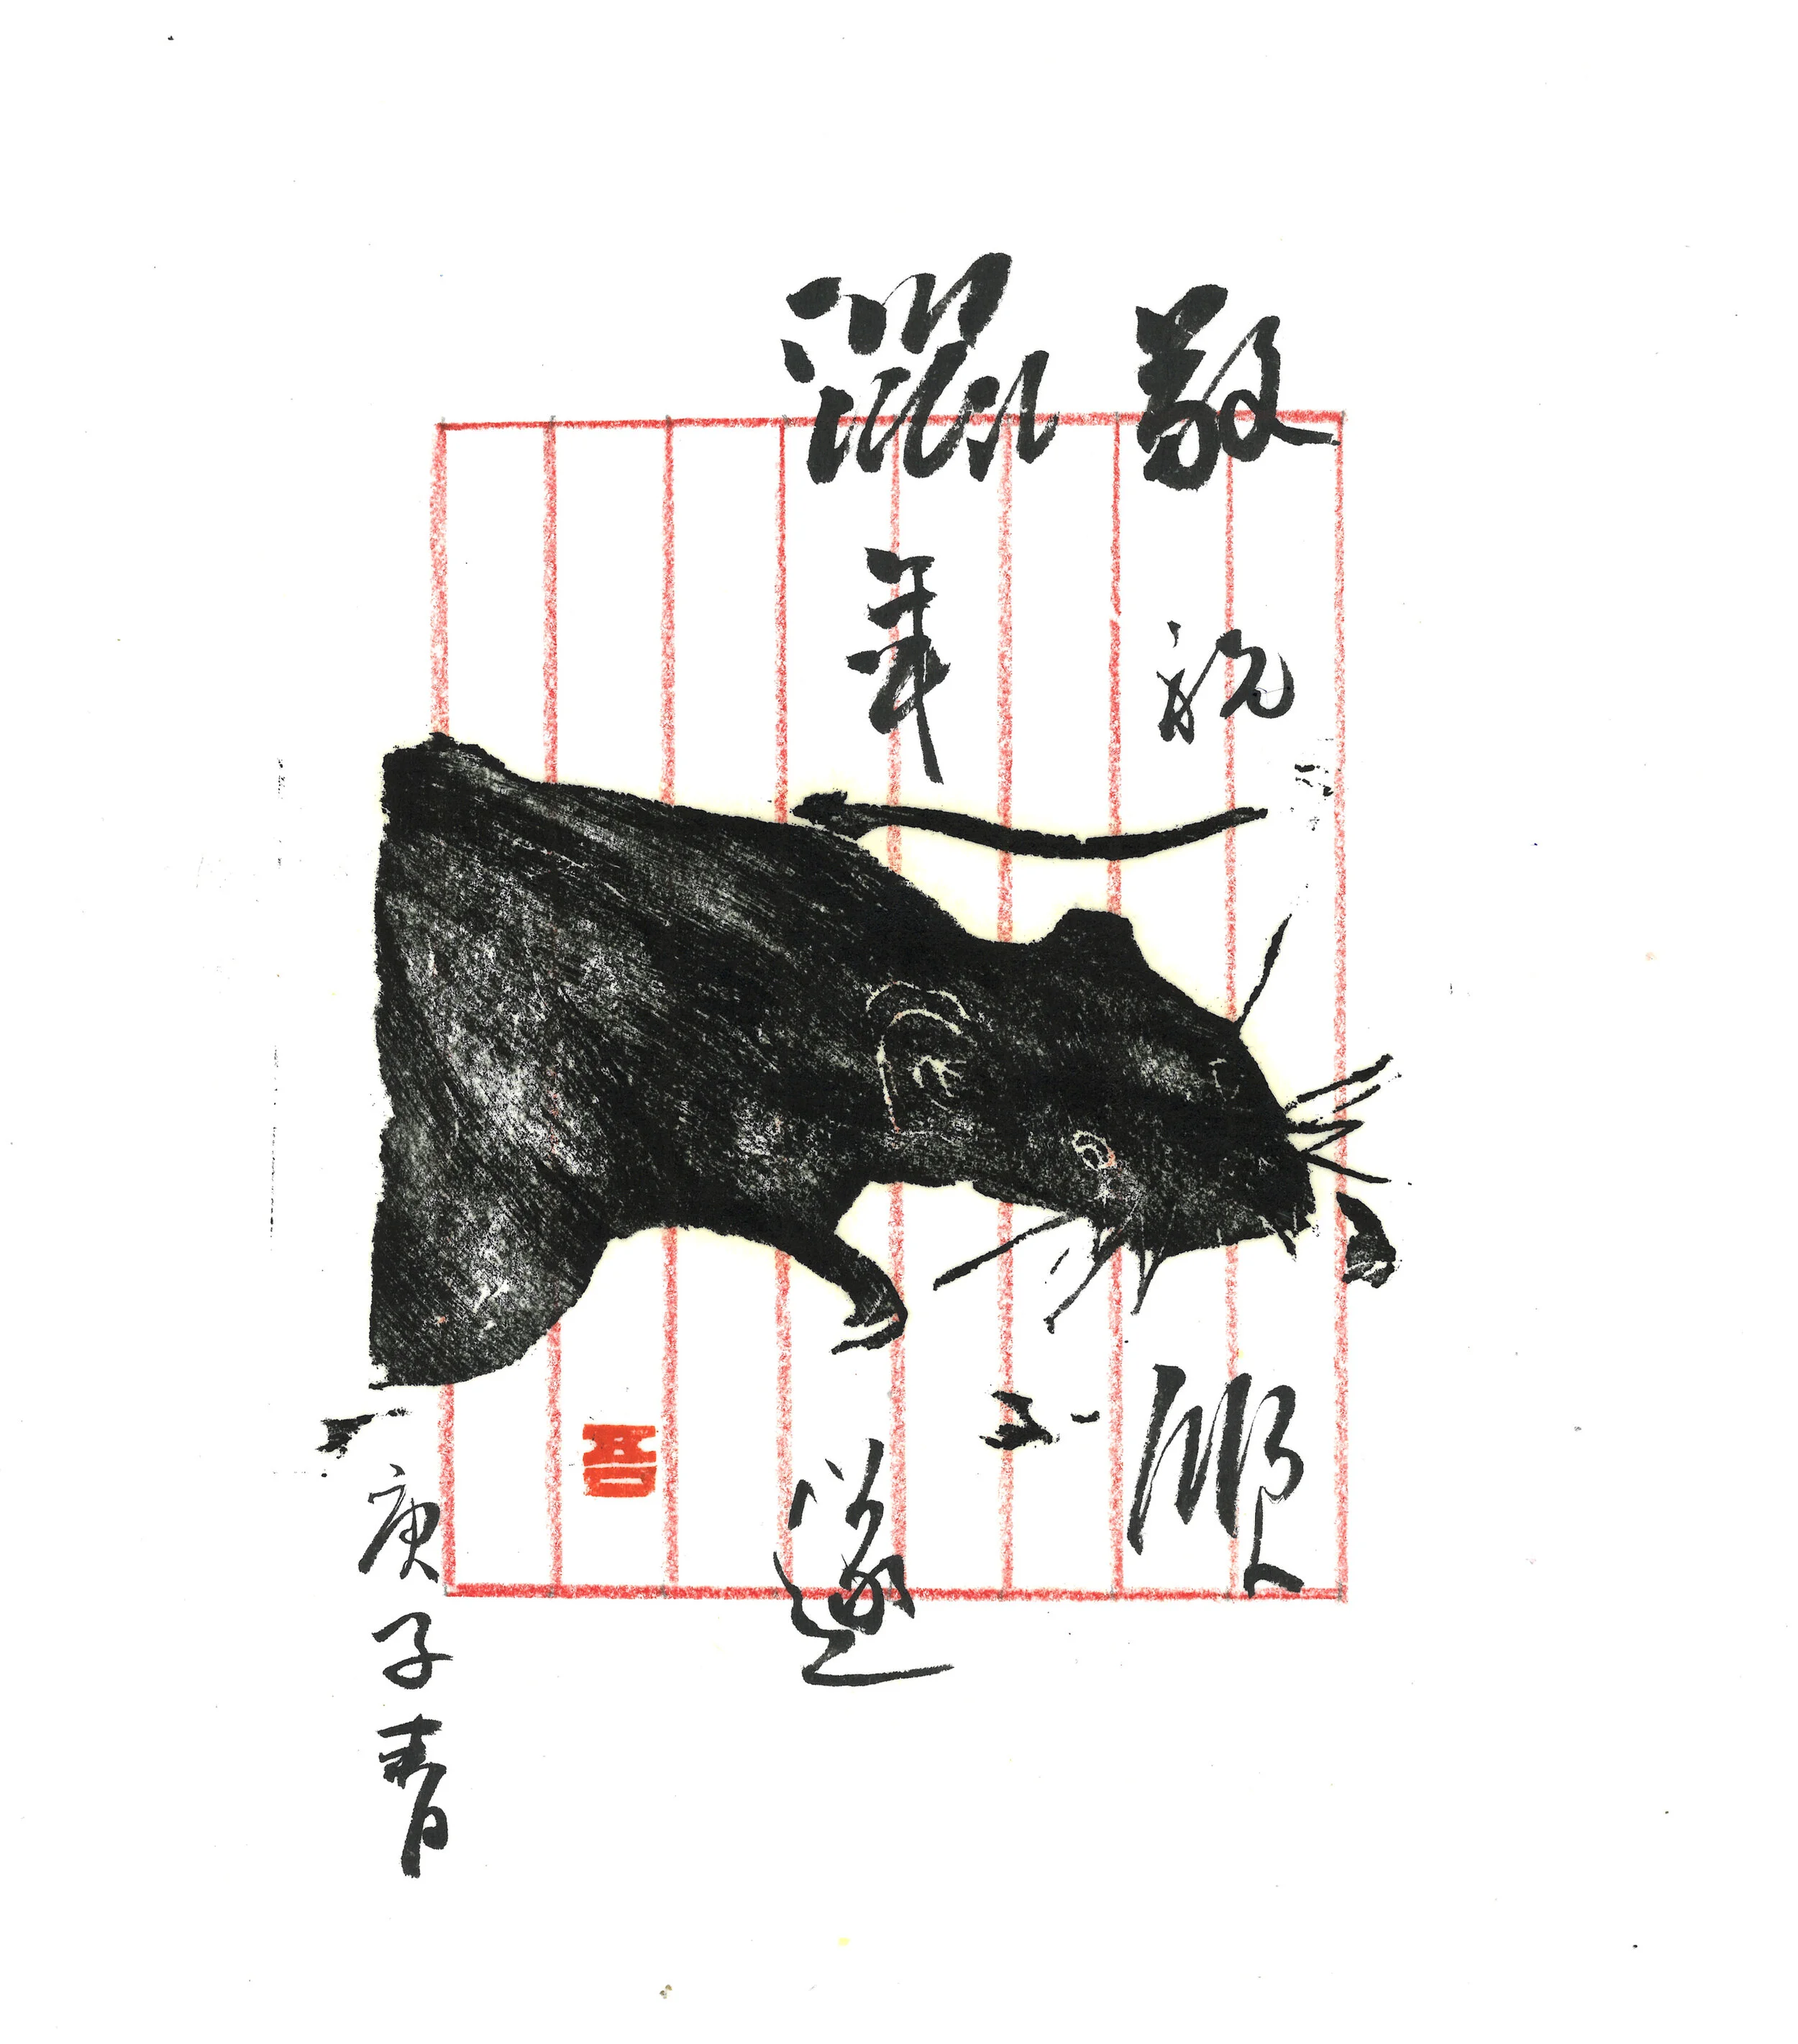 敬祝
鼠年
順
遂
庚子青
吾